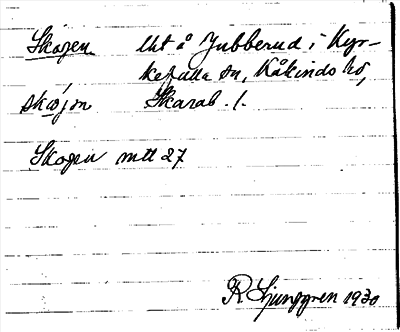 Skogen Ut å Jubberud i Kyr-
kefalla sn, Kåkinds hd,
skoʹjən Skarab. l.
Skogen mtt 27
R Ljunggren 1930